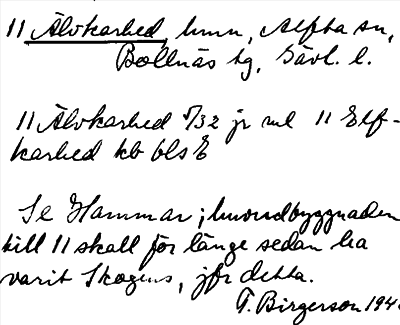 11 Älvkarhed, hmn, Alfta sn,
Bollnäs tg, Gävl. l.
11 Älvkarhed 5/32 jr ml 11 Elf-
karhed kb bls E
Se Hammar; huvudbyggnaden
till 11 skall för länge sedan ha
varit Skogens, jfr detta.
T. Birgerson 194